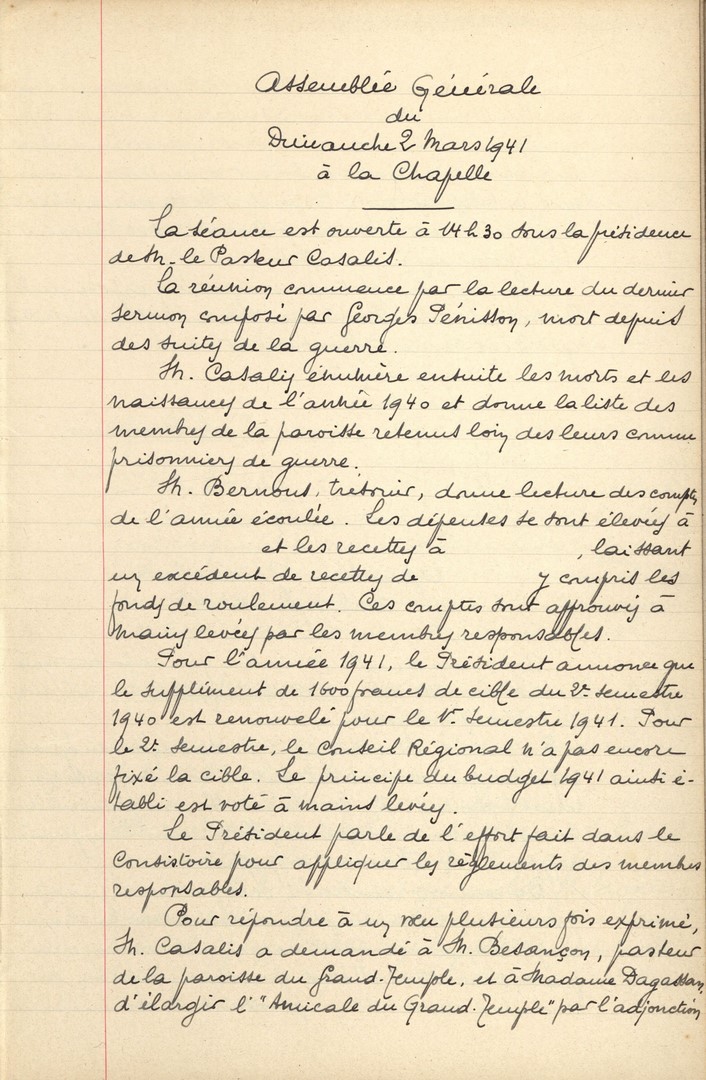 Assemblée Générale
du
Dimanche 2 Mars 1941
à la Chapelle
La séance est ouverte à 14 h 30 sous la présidence
de M. le Pasteur Casalis.
La réunion commence par la lecture du dernier
sermon composé par Georges Pénisson, mort depuis
des suites de la guerre.
M. Casalis énumère ensuite les morts et les
naissances de l'année 1940 et donne la liste des
membres de la paroisse retenus loin des leurs comme
prisonniers de guerre.
M. Bernous, trésorier, donne lecture des comptes
de l'année écoulée. Les dépenses se sont élevées à
et les recettes à , laissant
un excédent de recettes de y compris les
fonds de roulement. Ces comptes sont approuvés à
mains levées par les membres responsables.
Pour l'année 1941, le Président annonce que
le supplément de 1600 francs de cible du 2e semestre
1940 est renouvelé pour le 1er semestre 1941. Pour
le 2e semestre, le Conseil Régional n'a pas encore
fixé la cible. Le principe du budget 1941 ainsi é-
tabli est voté à mains levées.
Le Président parle de l'effort fait dans le
Consistoire pour appliquer les règlements des membres
responsables.
Pour répondre à un vœu plusieurs fois exprimé,
M. Casalis a demandé à M. Besançon, pasteur
de la paroisse du Grand-Temple, et à Madame Dagassan,
d'élargir l'"Amicale du Grand-Temple" par l'adjonction